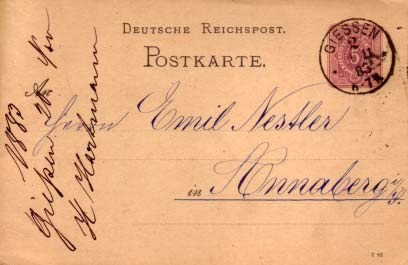 DEUTSCHE REICHSPOST.
POSTKARTE.
GIESSEN
5
Herrn Emil Nestler
in Annaberg
1883
Giessen
H Hartmann